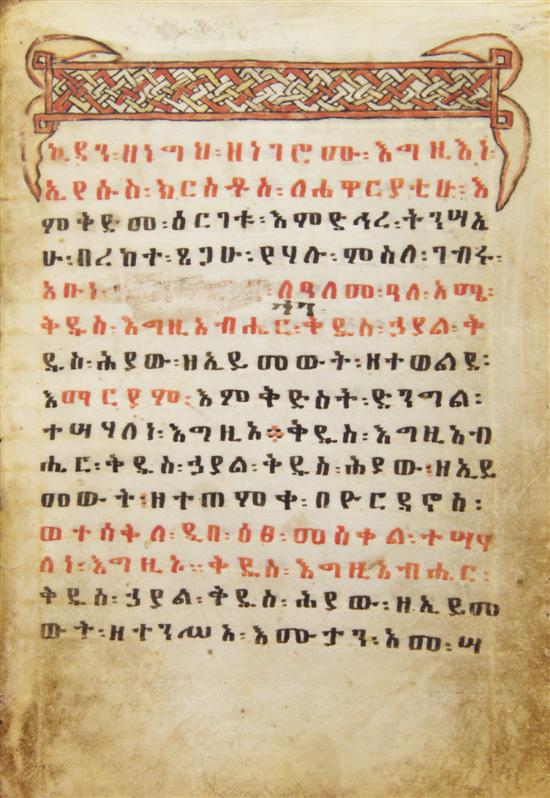 ኪዳን፡ ዘነግህ፡ ዘነገሮሙ፡ እግዚእነ፡
ኢየሱስ፡ ክርስቶስ፡ ለሐዋርያቲሁ፡ እ
ምቅድመ፡ ዕርገቱ፡ እምድኅረ፡ ትንሣኤ
ሁ፡ በረከተ፡ ጸጋሁ፡ የሃሉ፡ ምስለ፡ ገብሩ፡
አቡነ፡ ለዓለመ፡ ዓለ፡ አሜ፡
ቅዱስ፡ እግዚአብሔር፡ ቅዱስ፡ ኃያል፡ ቅ
ዱስ፡ ሕያው፡ ዘኢይመውት፡ ዘተወልደ፡
እማርያም፡ እምቅድስት፡ ድንግል፡
ተሣሃለነ፡ እግዚኦ፨ ቅዱስ፡ እግዚአብ
ሔር፡ ቅዱስ፡ ኃያል፡ ቅዱስ፡ ሕያው፡ ዘኢይ
መውት፡ ዘተጠምቀ፡ በዮርዳኖስ፡
ወተሰቅለ፡ ዲበ፡ ዕፀ፡ መስቀል፡ ተሣሃ
ለነ፡ እግዚኦ። ቅዱስ፡ እግዚአብሔር፡
ቅዱስ፡ ኃያል፡ ቅዱስ፡ ሕያው፡ ዘኢይመ
ውት፡ ዘተንሥአ፡ እሙታን፡ አመ፡ ሣ